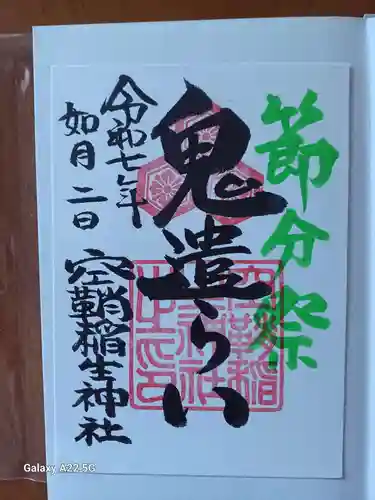 節分祭
鬼遣らい
令和七年
如月二日
空鞘稲生神社
Galaxy A22 5G